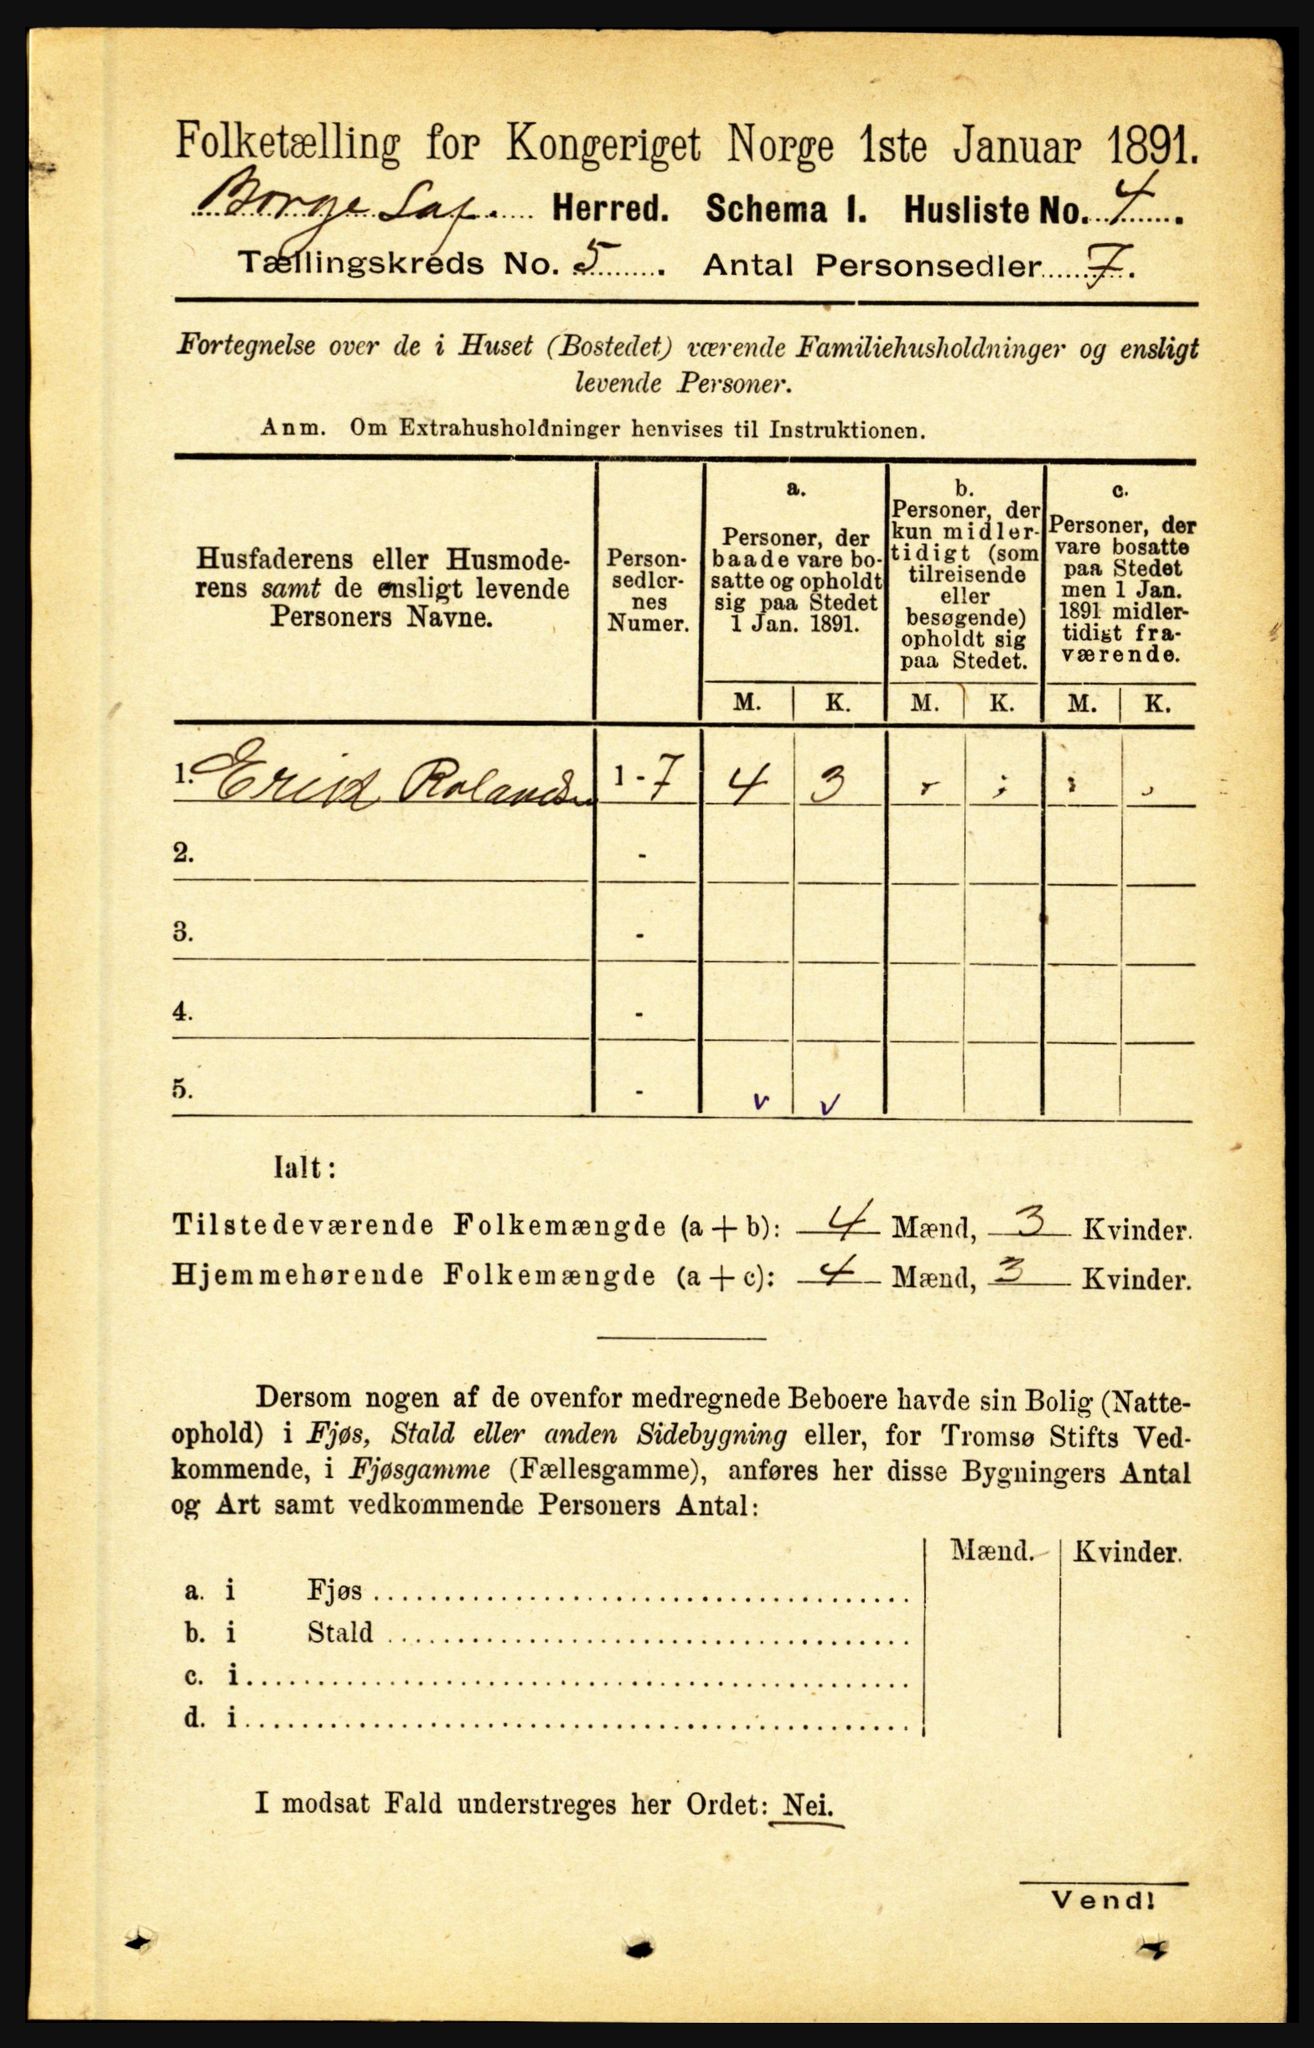 Folketælling for Kongeriget Norge 1ste Januar 1891.
Borge Lof. Herred. Schema I. Husliste No. 4.
Tællingskreds No. 5. Antal Personsedler 7.
Fortegnelse over de i Huset (Bostedet) værende Familiehusholdninger og ensligt
levende Personer.
Anm. Om Extrahusholdninger henvises til Instruktionen.
Husfaderens eller Husmode-
rens samt de ensligt levende
Personers Navne.
Person-
sedler-
nes
Numer.
a.
Personer, der
baade vare bo-
satte og opholdt
sig paa Stedet
1 Jan. 1891.
b.
Personer, der
kun midler-
tidigt (som
tilreisende
eller
besøgende)
opholdt sig
paa Stedet.
c.
Personer, der
vare bosatte
paa Stedet
men 1 Jan.
1891 midler-
tidigt fra-
værende.
M. K. M. K. M. K.
1. Erik Rolandsen 1 - 7 4 3
2. -
3. -
4. -
5. - v v
Ialt:
Tilstedeværende Folkemængde (a + b): 4 Mænd, 3 Kvinder.
Hjemmehørende Folkemængde (a + c): 4 Mænd, 3 Kvinder.
Dersom nogen af de ovenfor medregnede Beboere havde sin Bolig (Natte-
ophold) i Fjøs, Stald eller anden Sidebygning eller, for Tromsø Stifts Ved-
kommende, i Fjøsgamme (Fællesgamme), anføres her disse Bygningers Antal
og Art samt vedkommende Personers Antal:
Mænd. Kvinder.
a. i Fjøs
b. i Stald
c. i
d. i
I modsat Fald understreges her Ordet: Nei.
Vend!